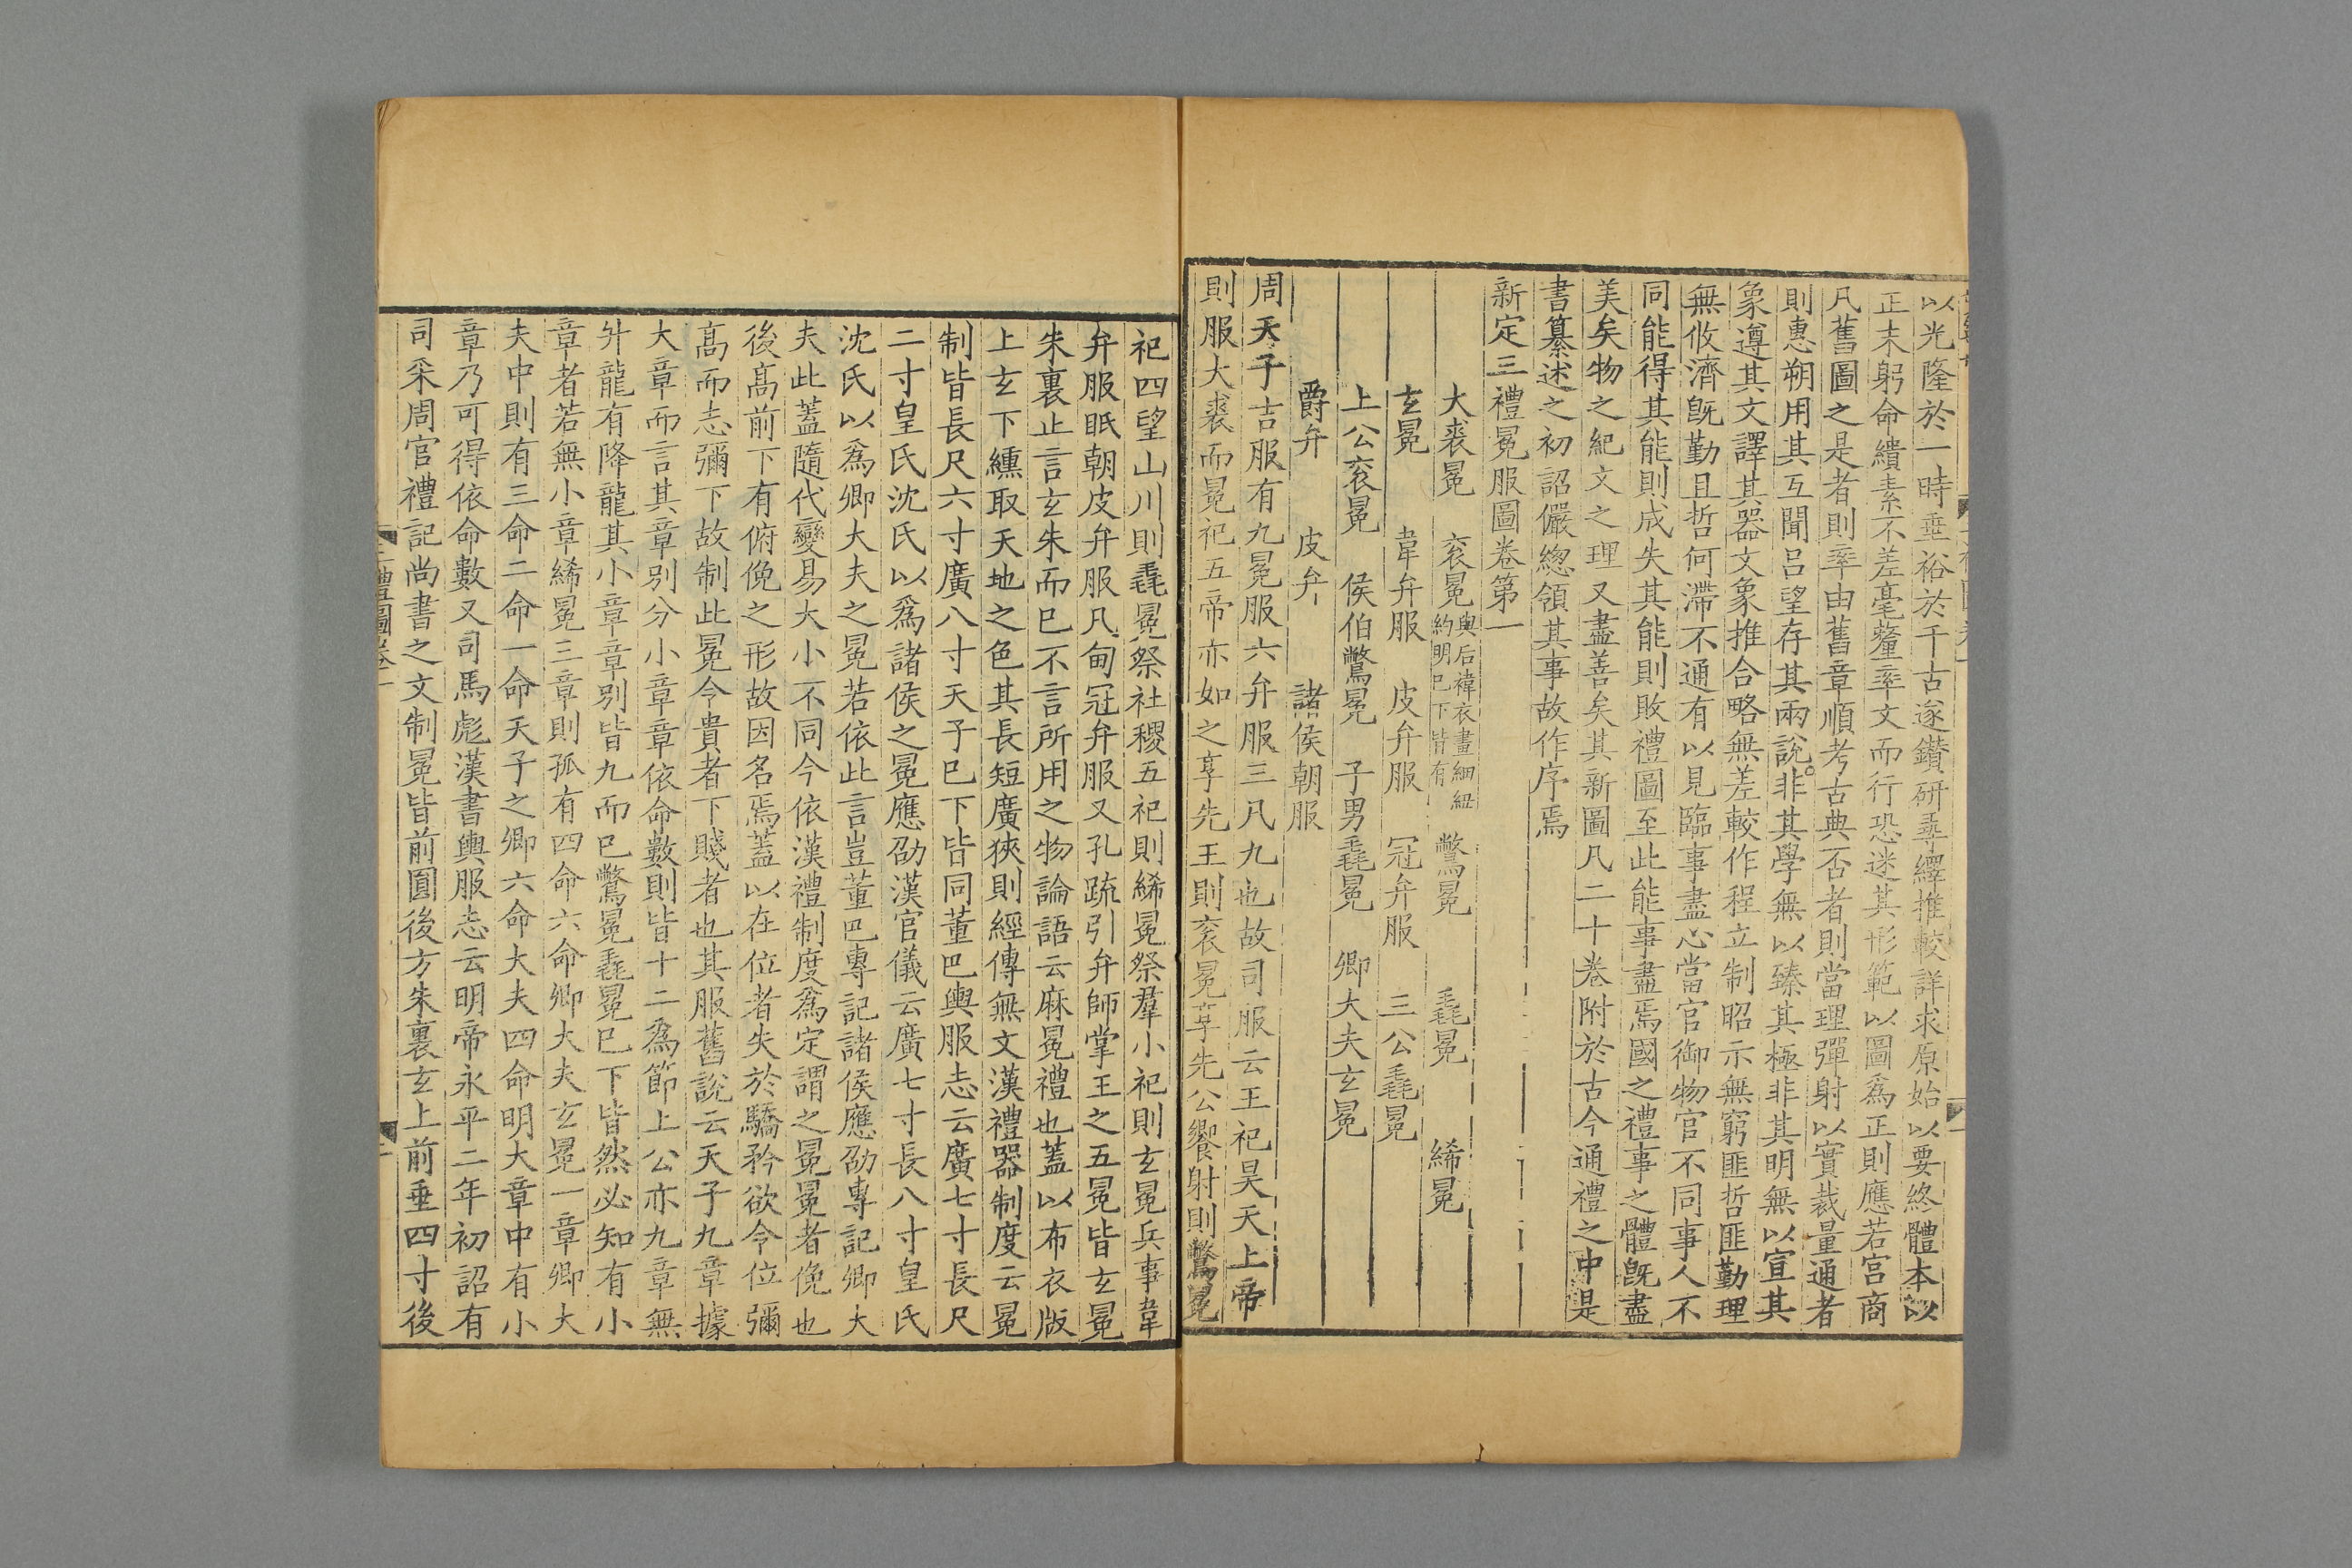 以光隆於一時垂裕於千古遂鑽研尋繹推較詳求原始以要終體本以
正末躬命繢素不差毫釐率文而行恐迷其形範以圖爲正則應若宮商
凡舊圖之是者則率由舊章順考古典否者則當理彈射以實裁量通者
則惠朔用其互聞呂望存其兩說非其學無以臻其極非其明無以宣其
象遵其文譯其器文象推合略無差較作程立制昭示無窮匪哲匪勤理
無攸濟旣勤且哲何滯不通有以見臨事盡心當官御物官不同事人不
同能得其能則成失其能則敗禮圖至此能事盡焉國之禮事之體旣盡
美矣物之紀文之理又盡善矣其新圖凡二十卷附於古今通禮之中是
書纂述之初詔儼緫領其事故作序焉
新定三禮冕服圖卷第一
大裘冕 衮冕 與后褘衣畫細紐約明巳下皆有 鷩冕 毳冕 絺冕
玄冕 韋弁服 皮弁服 冠弁服 三公毳冕
上公衮冕 侯伯鷩冕 子男毳冕 卿大夫玄冕
爵弁 皮弁 諸侯朝服
周天子吉服有九冕服六弁服三凡九也故司服云王祀昊天上帝
則服大裘而冕祀五帝亦如之享先王則衮冕享先公饗射則鷩冕
祀四望山川則毳冕祭社稷五祀則絺冕祭羣小祀則玄冕兵事韋
弁服眂朝皮弁服凡甸冠弁服又孔疏引弁師掌王之五冕皆玄冕
朱裏止言玄朱而巳不言所用之物論語云麻冕禮也蓋以布衣版
上玄下纁取天地之色其長短廣狹則經傳無文漢禮器制度云冕
制皆長尺六寸廣八寸天子巳下皆同董巴輿服志云廣七寸長尺
二寸皇氏沈氏以爲諸侯之冕應劭漢官儀云廣七寸長八寸皇氏
沈氏以爲卿大夫之冕若依此言豈董巴專記諸侯應劭專記卿大
夫此蓋隨代變易大小不同今依漢禮制度爲定謂之冕冕者俛也
後髙前下有俯俛之形故因名焉蓋以在位者失於驕矜欲令位彌
髙而志彌下故制此冕令貴者下賤者也其服舊說云天子九章據
大章而言其章別分小章章依命數則皆十二爲節上公亦九章無
升龍有降龍其小章章別皆九而巳鷩冕毳冕巳下皆然必知有小
章者若無小章絺冕三章則孤有四命六命卿大夫玄冕一章卿大
夫中則有三命二命一命天子之卿六命大夫四命明大章中有小
章乃可得依命數又司馬彪漢書輿服志云明帝永平二年初詔有
司采周官禮記尚書之文制冕皆前圓後方朱裏玄上前垂四寸後
三禮圖卷一
一